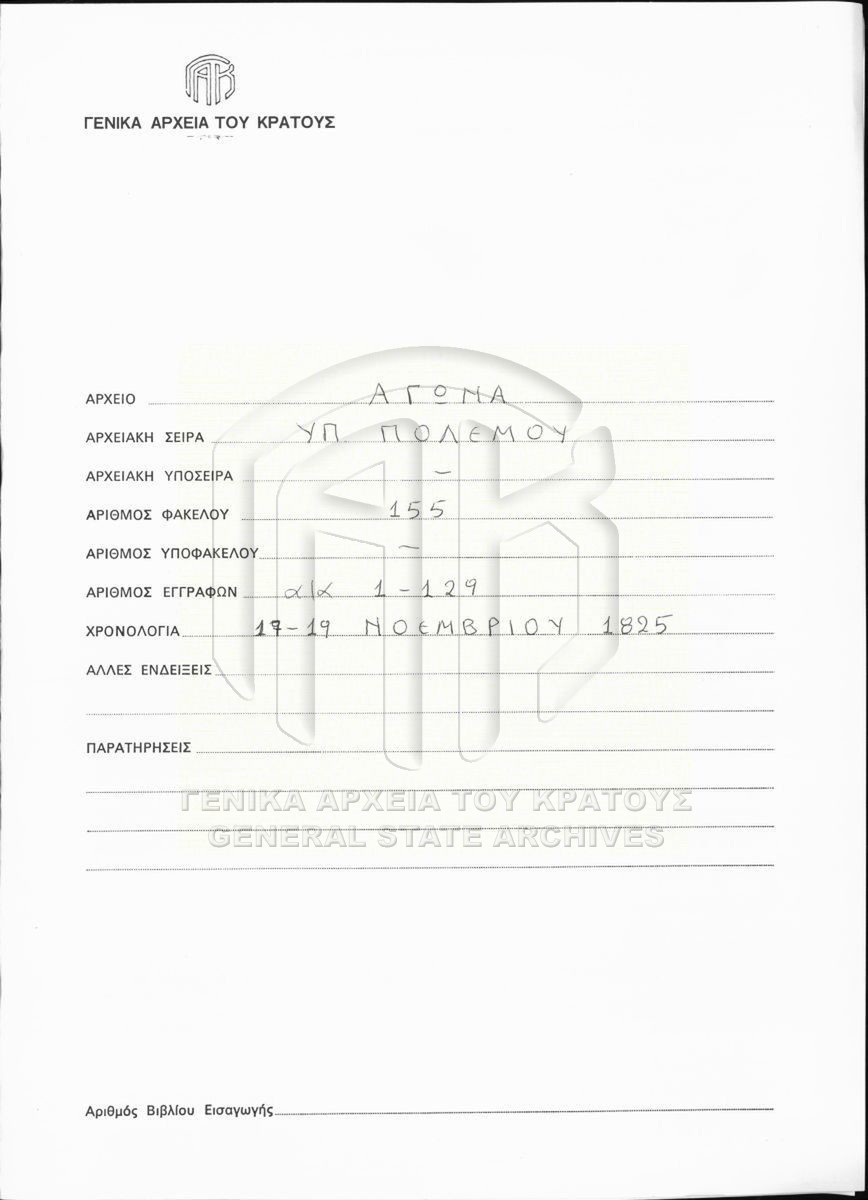 ΓΑΚ
ΓΕΝΙΚΑ ΑΡΧΕΙΑ ΤΟΥ ΚΡΑΤΟΥΣ
ΑΡΧΕΙΟ ΑΓΩΝΑ
ΑΡΧΕΙΑΚΗ ΣΕΙΡΑ ΥΠ. ΠΟΛΕΜΟΥ
ΑΡΧΕΙΑΚΗ ΥΠΟΣΕΙΡΑ –
ΑΡΙΘΜΟΣ ΦΑΚΕΛΟΥ 155
ΑΡΙΘΜΟΣ ΥΠΟΦΑΚΕΛΟΥ –
ΑΡΙΘΜΟΣ ΕΓΓΡΑΦΩΝ α/α 1-129
ΧΡΟΝΟΛΟΓΙΑ 17-19 ΝΟΕΜΒΡΙΟΥ 1825
ΑΛΛΕΣ ΕΝΔΕΙΞΕΙΣ
ΠΑΡΑΤΗΡΗΣΕΙΣ
ΓΕΝΙΚΑ ΑΡΧΕΙΑ ΤΟΥ ΚΡΑΤΟΥΣ
GENERAL STATE ARCHIVES
Αριθμός Βιβλίου Εισαγωγής